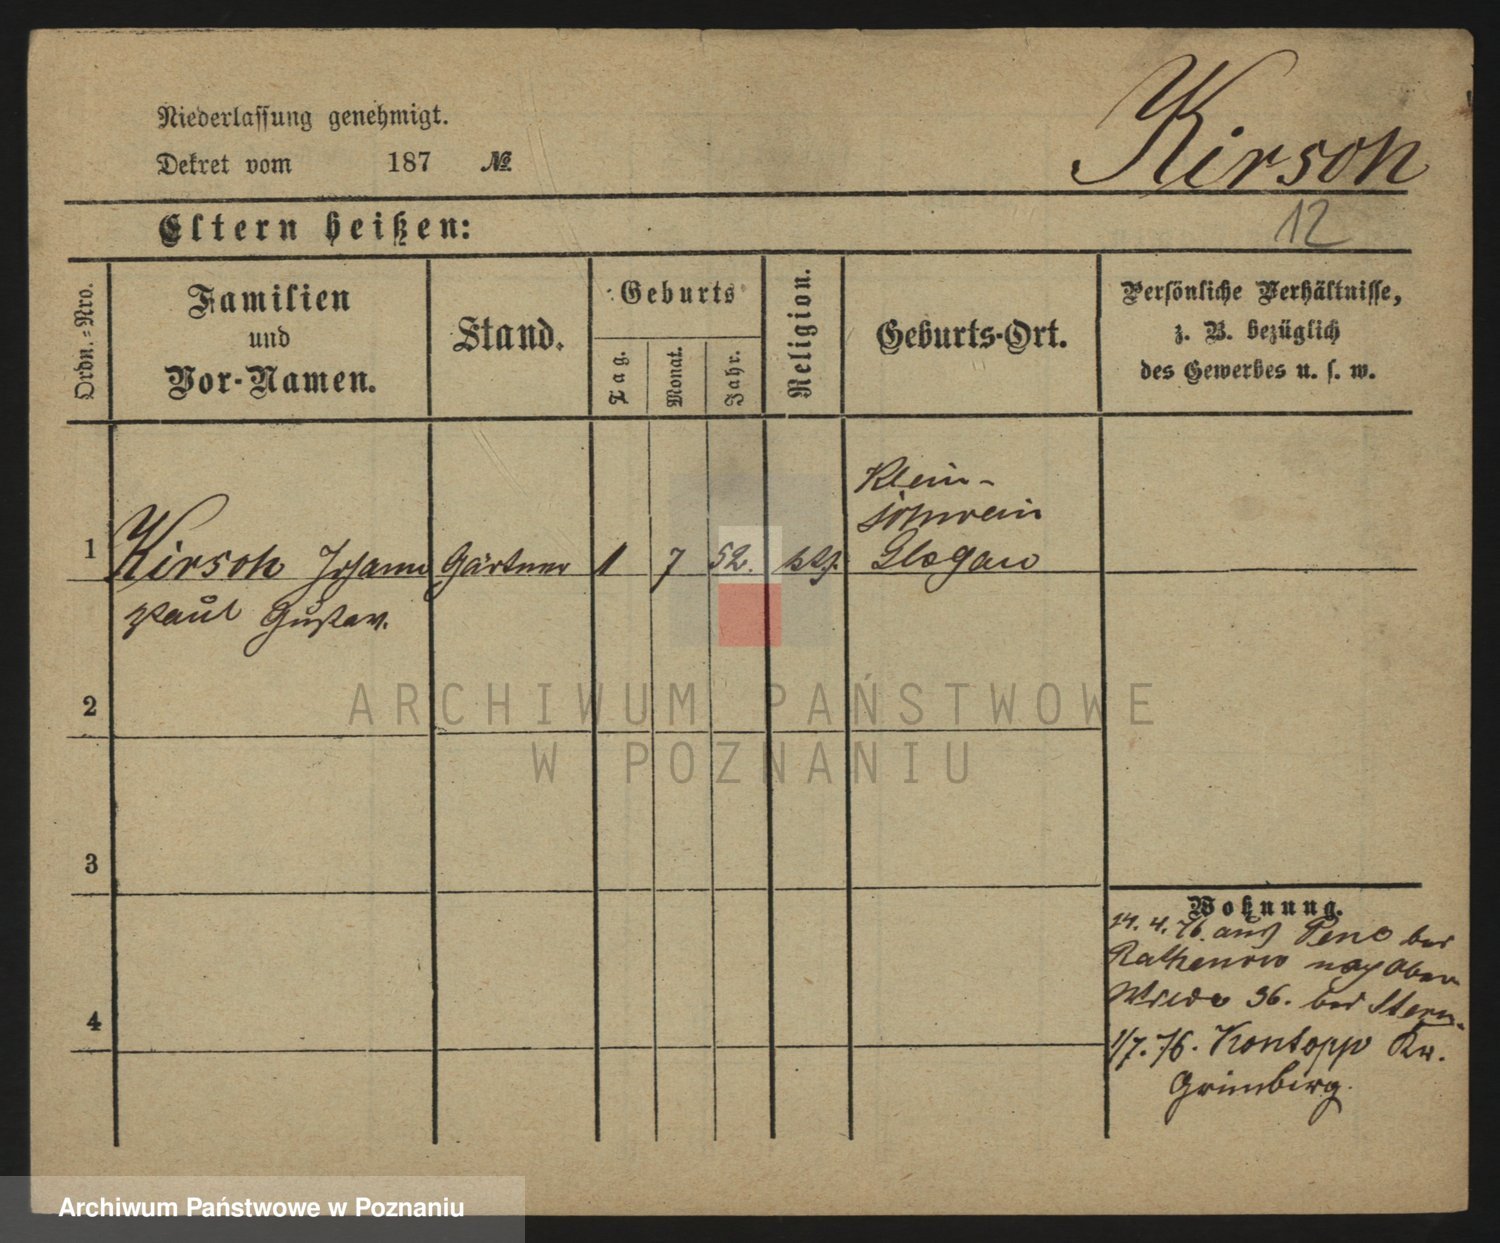 Niederlassung genehmigt.
Dekret vom 187 №
Kirsch
12
Eltern heißen:
Ordn.-Nro.
Familien
und
Vor-Namen.
Stand.
Geburts
Tag.
Monat.
Jahr.
Religion.
Geburts-Ort.
Persönliche Verhältnisse,
z. B. bezüglich
des Gewerbes u. s. w.
1
Kirsch Johann
Paul Gustav.
Gärtner
1
7
52.
Klein-
Glogau
2
3
4
Wohnung.
14. 4. 76. aus bei
Rathenow nach Ober
Wilda 36. bei Stern.
1/7. 76. Kontopp Kr.
Grünberg.
ARCHIWUM PAŃSTWOWE
W POZNANIU
Archiwum Państwowe w Poznaniu